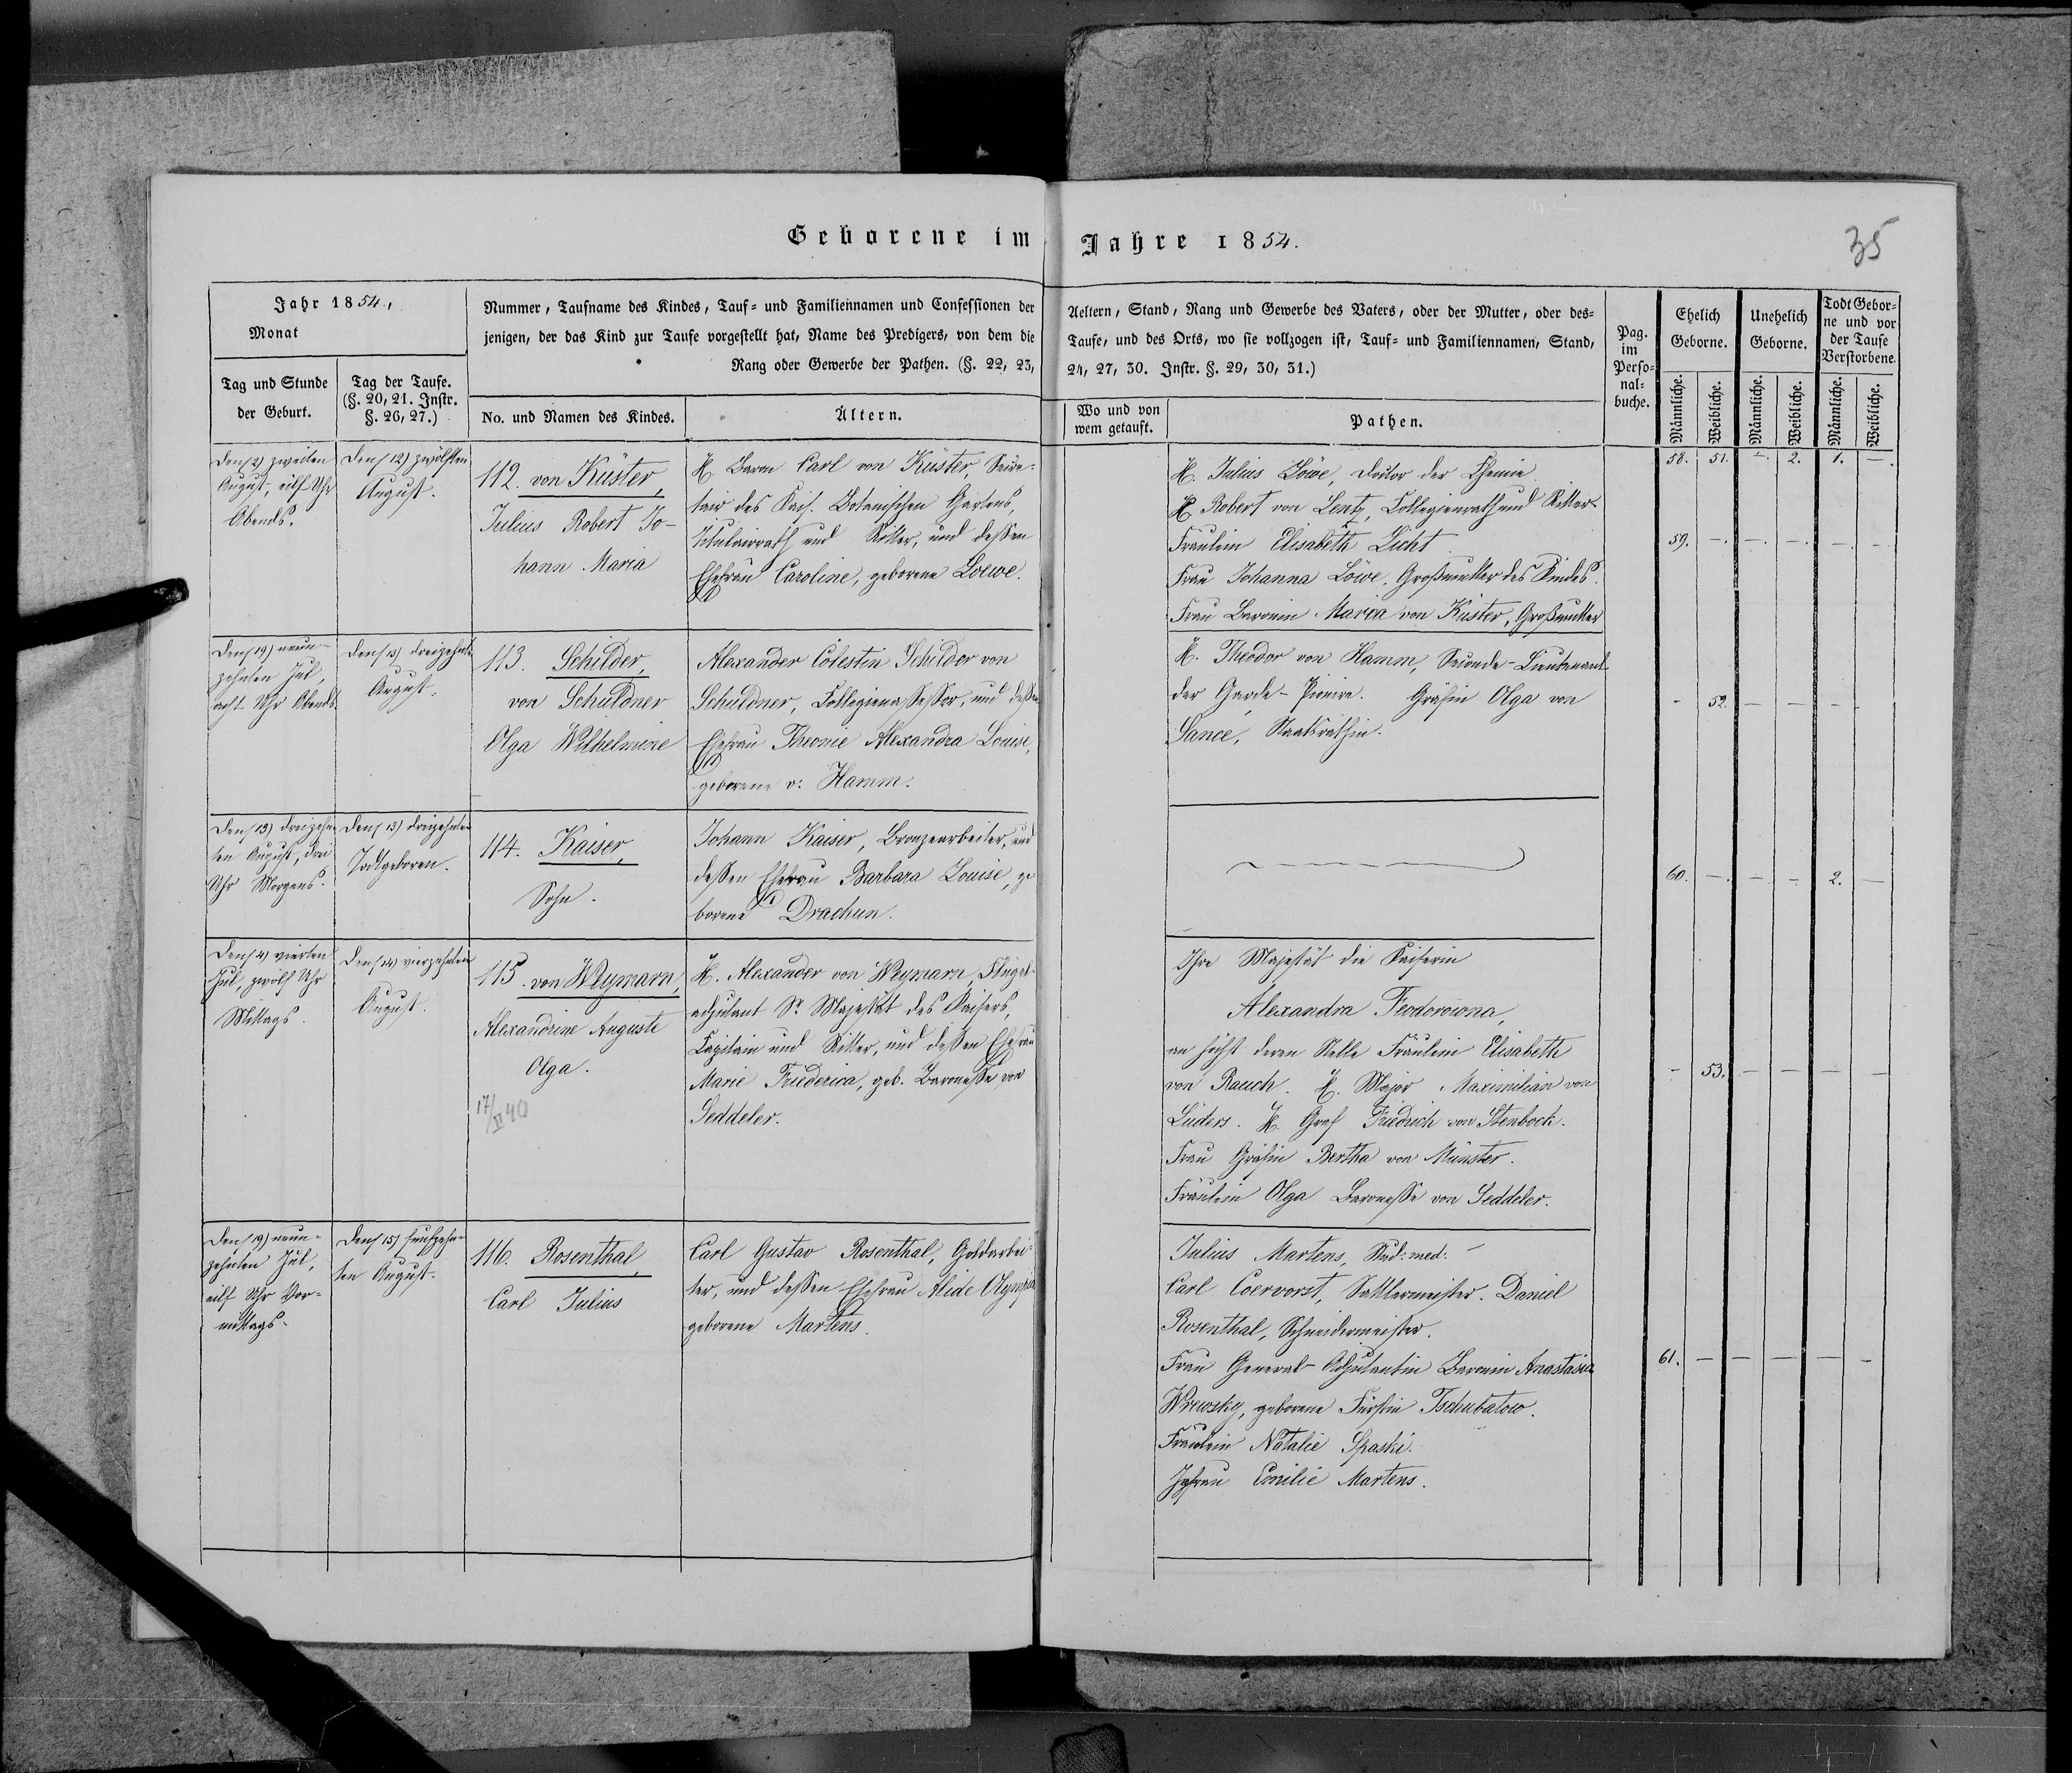 Geborene im Jahre 1854.
35
Jahr 1854,
Monat
Tag und Stunde
der Geburt.
Tag der Taufe.
(§. 20, 21. Instr.
§. 26, 27.)
Nummer, Taufname des Kindes, Tauf- und Familiennamen und Confessionen der
jenigen, der das Kind zur Taufe vorgestellt hat, Name des Predigers, von dem die
Rang oder Gewerbe der Pathen. (§. 22, 23,
No. und Namen des Kindes.
Ältern.
Aeltern, Stand, Rang und Gewerbe des Vaters, oder der Mutter, oder des-
Taufe, und des Orts, wo sie vollzogen ist, Tauf- und Familiennamen, Stand,
24, 27, 30. Instr. §. 29, 30, 31.)
Wo und von
wem getauft.
Pathen.
Pag.
im
Perso-
nal-
buche.
Ehelich
Geborne.
Unehelich
Geborne.
Todt Gebor-
ne und vor
der Taufe
Verstorbene.
Männliche.
Weibliche.
Männliche.
Weibliche.
Männliche.
Weibliche.
Den (2) zweiten
August, eilf Uhr
Abends.
Den (12) zwölften
August.
112. von Küster,
Julius Robert Jo-
hann Maria
H. Baron Carl von Küster, Secre-
tair des Kais. Botanischen Gartens,
Titulairrath und Ritter, und dessen
Ehefrau Caroline, geborene Loewe.
H. Julius Löwe, Doctor der Chemie
H. Robert von Lentz, Collegienrath und Ritter
Fräulein Elisabeth Licht
Frau Johanna Löwe, Großmutter des Kindes.
Frau Baronin Maria von Küster, Großmutter
58. 51. – 2. 1. –
59. – – – – –
Den (19) neun-
zehnten Jul,
acht Uhr Abends
Den (13) dreizehnten
August.
113. Schilder,
von Schuldner
Olga Wilhelmine
Alexander Cölestin Schilder von
Schuldner, Collegienassessor, und dessen
Ehefrau Theonie Alexandra Louise,
geborene v. Hamm.
H. Theodor von Hamm, Seconde-Lieutenant
der Garde-Pionire. Gräfin Olga von
Sance, Staatsräthin.
– 52. – – –
Den (13) dreizehn-
ten August, drei
Uhr Morgens.
Den (13) dreizehnten
Todtgeboren.
114. Kaiser,
Sohn.
Johann Kaiser, Bronzearbeiter, und
dessen Ehefrau Barbara Louise, ge-
borene Drachun.
60. – – – 2. –
Den (4) vierten
Jul, zwölf Uhr
Mittags.
Den (14) vierzehnten
August.
115. von Weymarn,
Alexandrine Auguste
Olga.
17/II 40
H. Alexander von Weymarn, Flügel-
adjutant Sr. Majestät des Kaisers,
Capitain und Ritter, und dessen Ehefrau
Marie Friederica, geb. Baronesse von
Seddeler.
Ihre Majestät die Kaiserin
Alexandra Feodorowna,
an höchst deren Stelle Fräulein Elisabeth
von Rauch. H. Major Maximilian von
Lüders. H. Graf Friedrich von Stenbock.
Frau Gräfin Bertha von Münster.
Fräulein Olga Baronesse von Seddeler.
– 53. – – – –
Den (19) neun-
zehnten Jul,
eilf Uhr Vor-
mittags.
Den (15) fünfzehn-
ten August.
116. Rosenthal,
Carl Julius
Carl Gustav Rosenthal, Goldarbei-
ter, und dessen Ehefrau Alide Olympia
geborene Martens.
Julius Martens, Stud: med:
Carl Coervorst, Sattlermeister. Daniel
Rosenthal, Schneidermeister.
Frau General-Adjutantin Baronin Anastasia
Wrewsky, geborene Fürstin
Fräulein Natalie Spaski.
Jgfrau Emilie Martens.
61. – – – – –